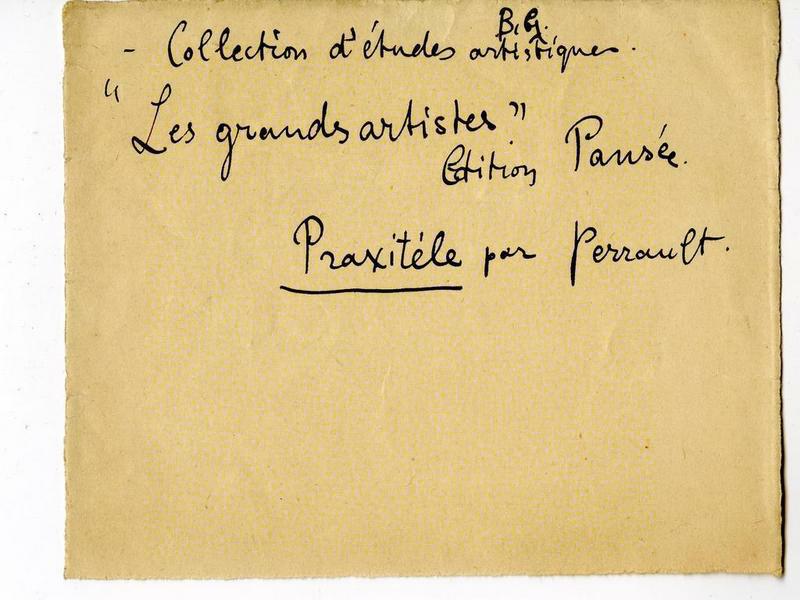 B.G.
- Collection d'études artistiques.
"Les grands artistes"
Edition Pausée.
Praxitéle par Perrault.